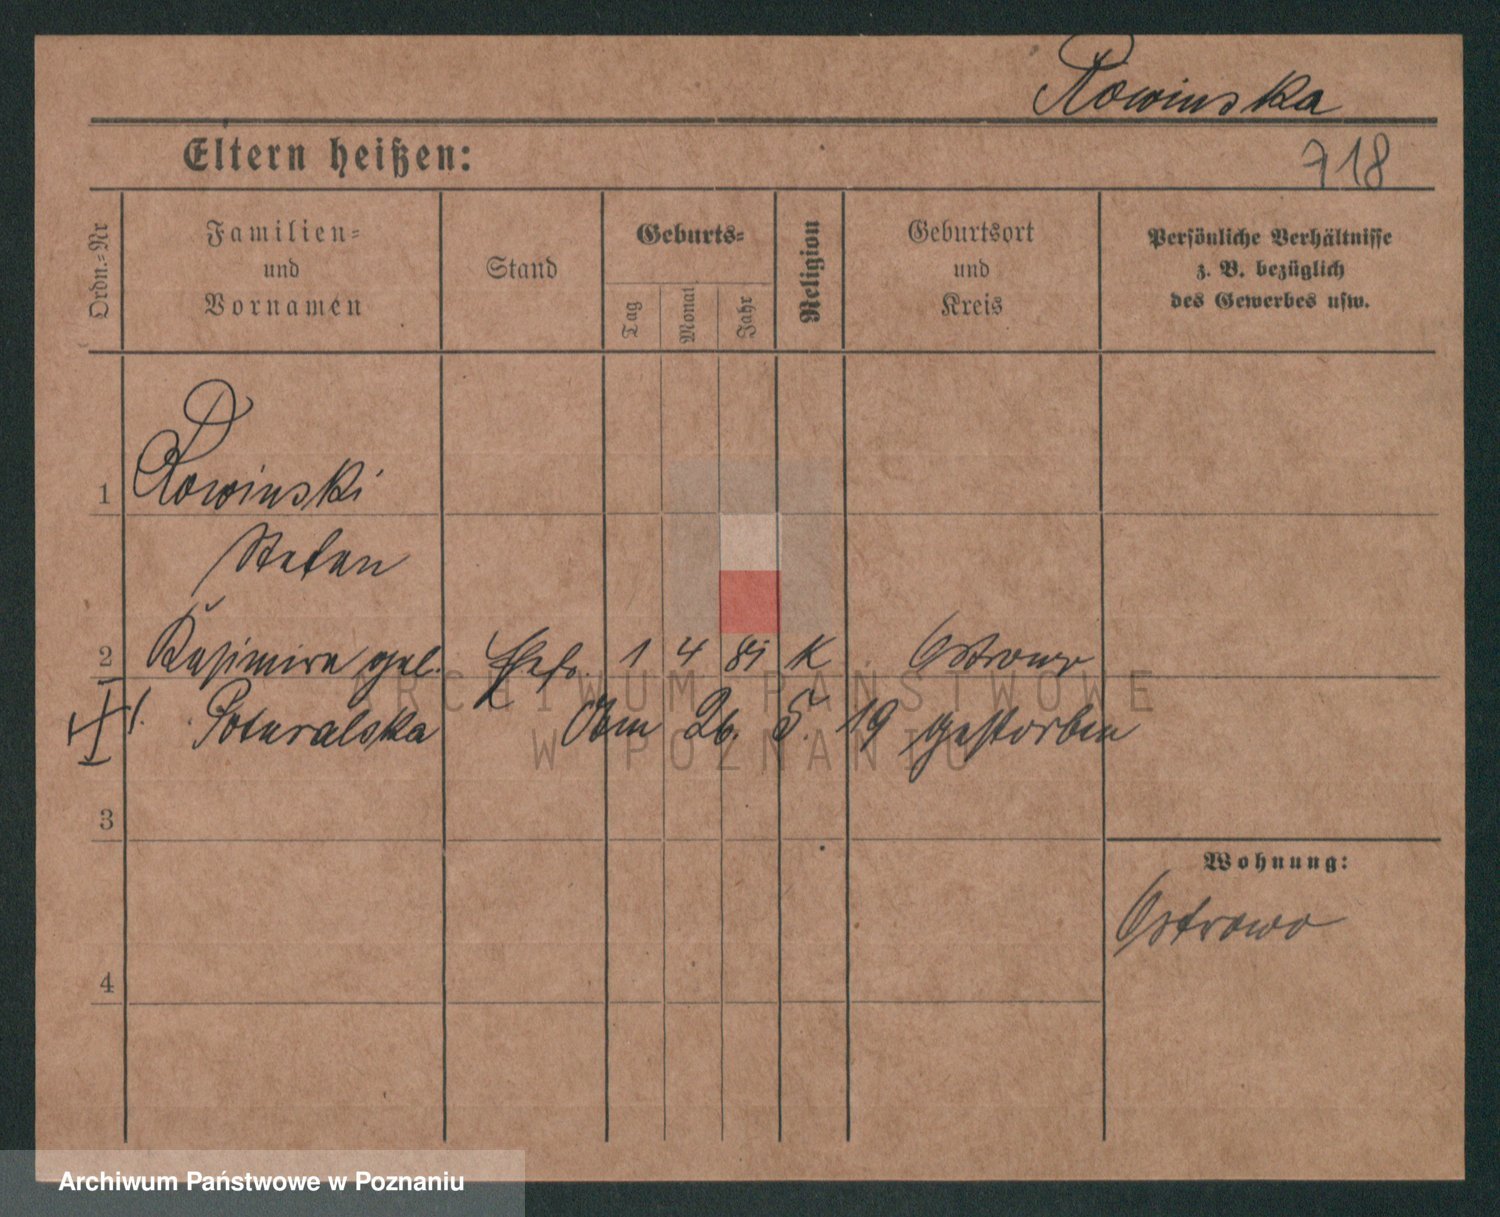 Rowinska
Eltern heißen:
718
Ordn.-Nr
Familien-
und
Vornamen
Stand
Geburts-
Tag
Monat
Jahr
Religion
Geburtsort
und
Kreis
Persönliche Verhältnisse
z. B. bezüglich
des Gewerbes usw.
1 Rowinski
Stefan
2 Kasimira geb. Ehefr. 1 4 81 K Ostrowo
Poturalska Am 26. 5. 19 gestorben
3
Wohnung:
Ostrowo
4
ARCHIWUM PAŃSTWOWE
W POZNANIU
Archiwum Państwowe w Poznaniu